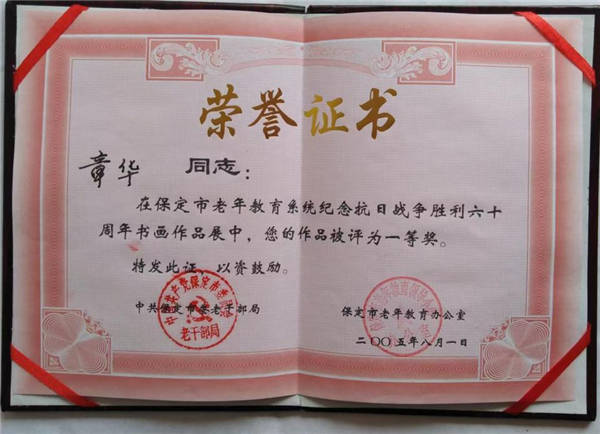 荣誉证书
章华 同志:
在保定市老年教育系统纪念抗日战争胜利六十
周年书画作品展中，您的作品被评为一等奖。
特发此证，以资鼓励。
中共保定市委老干部局
保定市老年教育办公室
二〇〇五年八月一日
中国共产党保定市委员会
老干部局